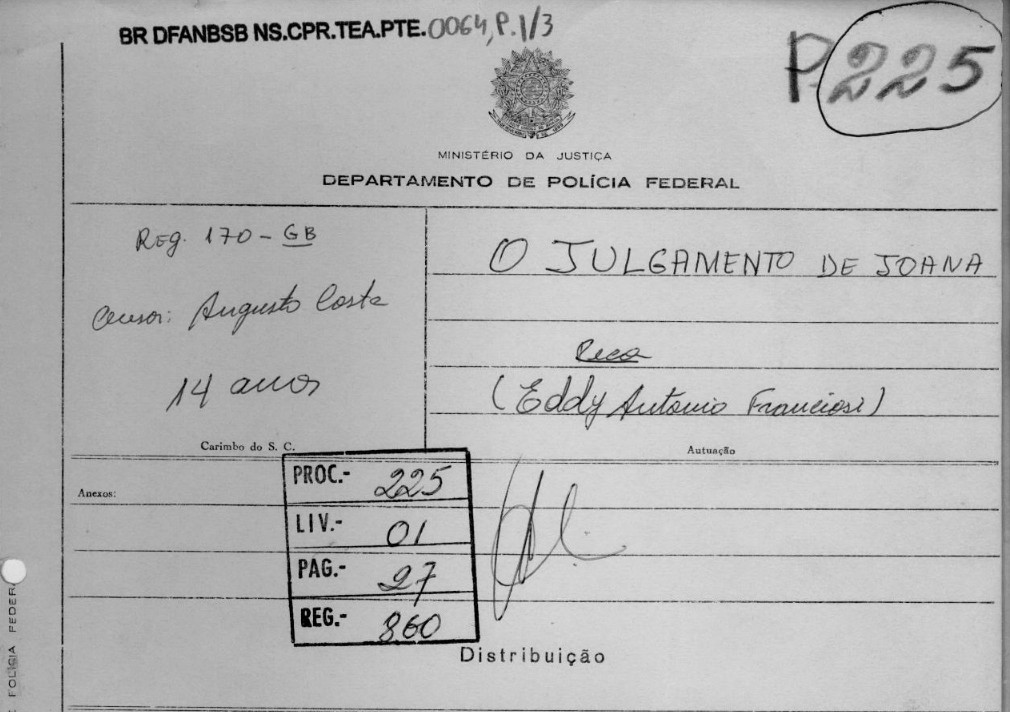 BR DFANBSB NS.CPR.TEA.PTE.0064, P.1/3
P.225
MINISTÉRIO DA JUSTIÇA
DEPARTAMENTO DE POLÍCIA FEDERAL
Reg. 170 - GB
Censor: Augusto Costa
14 anos
Carimbo do S. C.
O JULGAMENTO DE JOANA
Peça
(Eddy Antonio Franciosi)
Autuação
Anexos:
PROC.- 225
LIV.- 01
PAG.- 27
REG.- 860
Distribuição
POLÍCIA FEDER